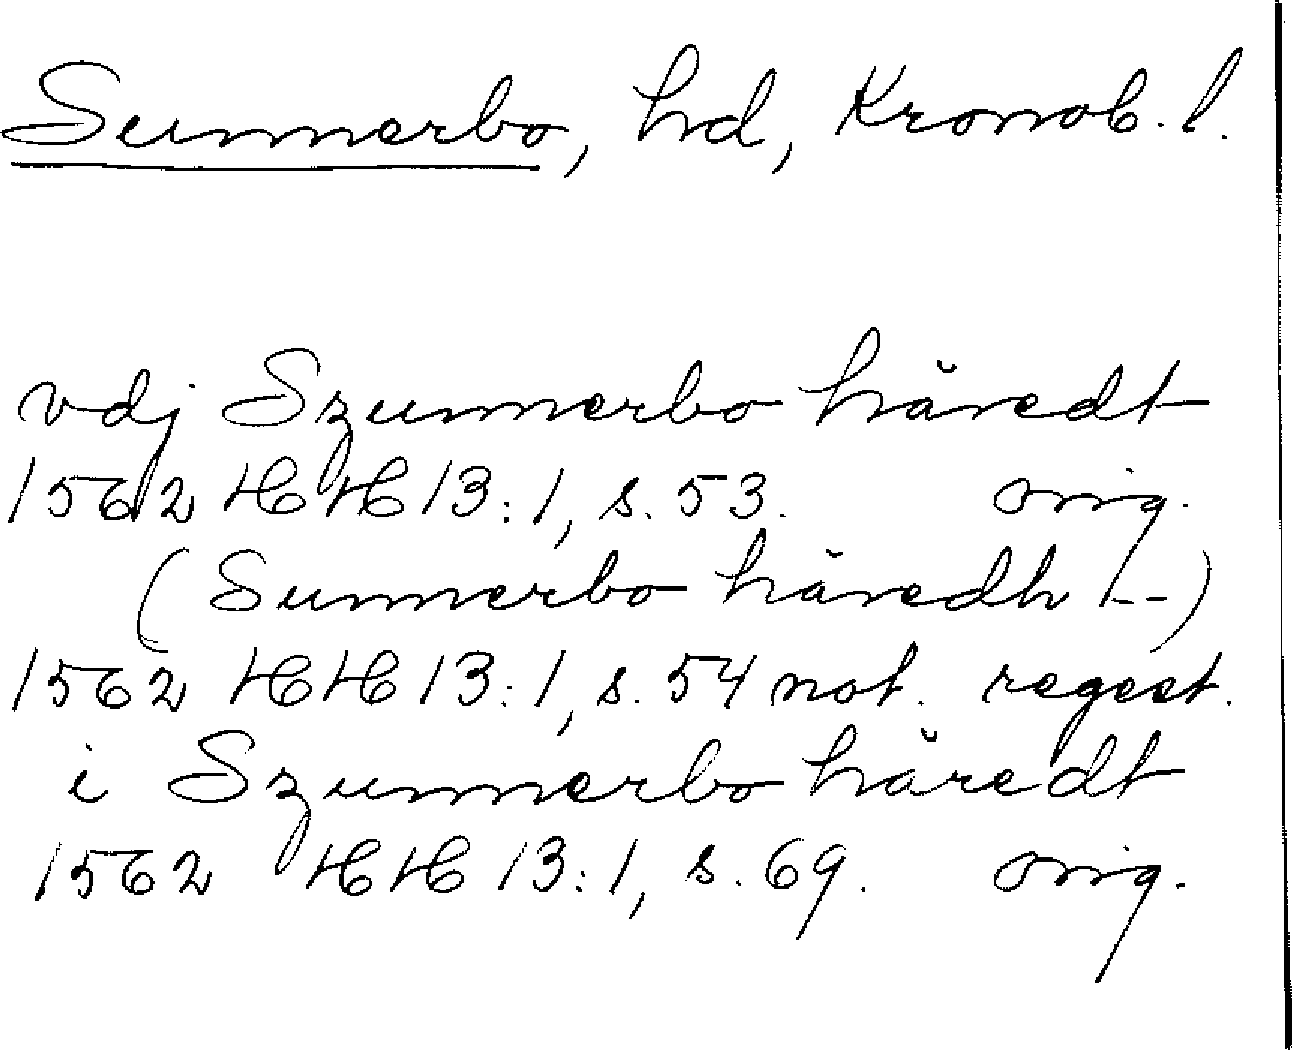 Sunnerbo, hd, Kronob. l.
vdj Szunnerbo häredt
1562 HH 13:1, s. 53. orig.
(Sunnerbo häredh [--)
1562 HH 13:1, s. 54 not. regest.
i Szunnerbo häredt
1562 HH 13:1, s. 69. orig.